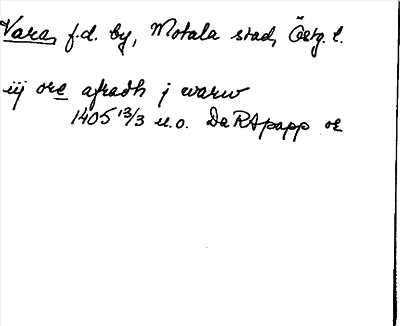 Vara, f.d. by, Motala stad, Östg. l.
iij ore afradh j warw
1405 13/3 u.o. DaRApapp or